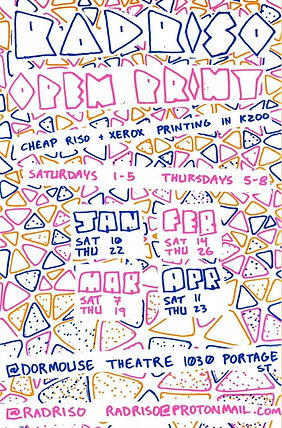 RADRISO
OPEN PRINT
CHEAP RISO + XEROX PRINTING IN KZOO
SATURDAYS 1-5 THURSDAYS 5-8
JAN FEB
SAT 10 SAT 14
THU 22 THU 26
MAR APR
SAT 7 SAT 11
THU 19 THU 23
@DORMOUSE THEATRE 1030 PORTAGE
ST.
@RADRISO RADRISO@PROTONMAIL.COM